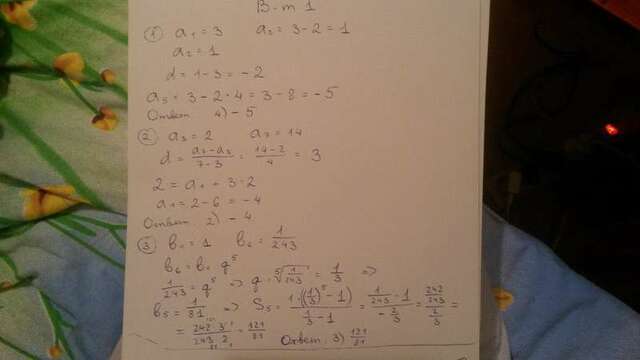 В-т 1
① a₁ = 3 a₂ = 3-2 = 1
a₂ = 1
d = 1-3 = -2
a₅ = 3 - 2·4 = 3 - 8 = -5
Ответ 4) -5
② a₃ = 2 a₇ = 14
d = (a₇-a₃)/(7-3) = (14-2)/4 = 3
2 = a₁ + 3·2
a₁ = 2-6 = -4
Ответ 2) -4
③ b₁ = 1 b₆ = 1/243
b₆ = b₁ · q⁵
1/243 = q⁵ => q = ⁵√(1/243) = 1/3 =>
b₅ = 1/81 => S₅ = 1·((1/3)⁵-1)/(1/3-1) = (1/243-1)/(-2/3) = (242/243)/(2/3) =
= 242·3/243·2 = 121/81 Ответ 3) 121/81